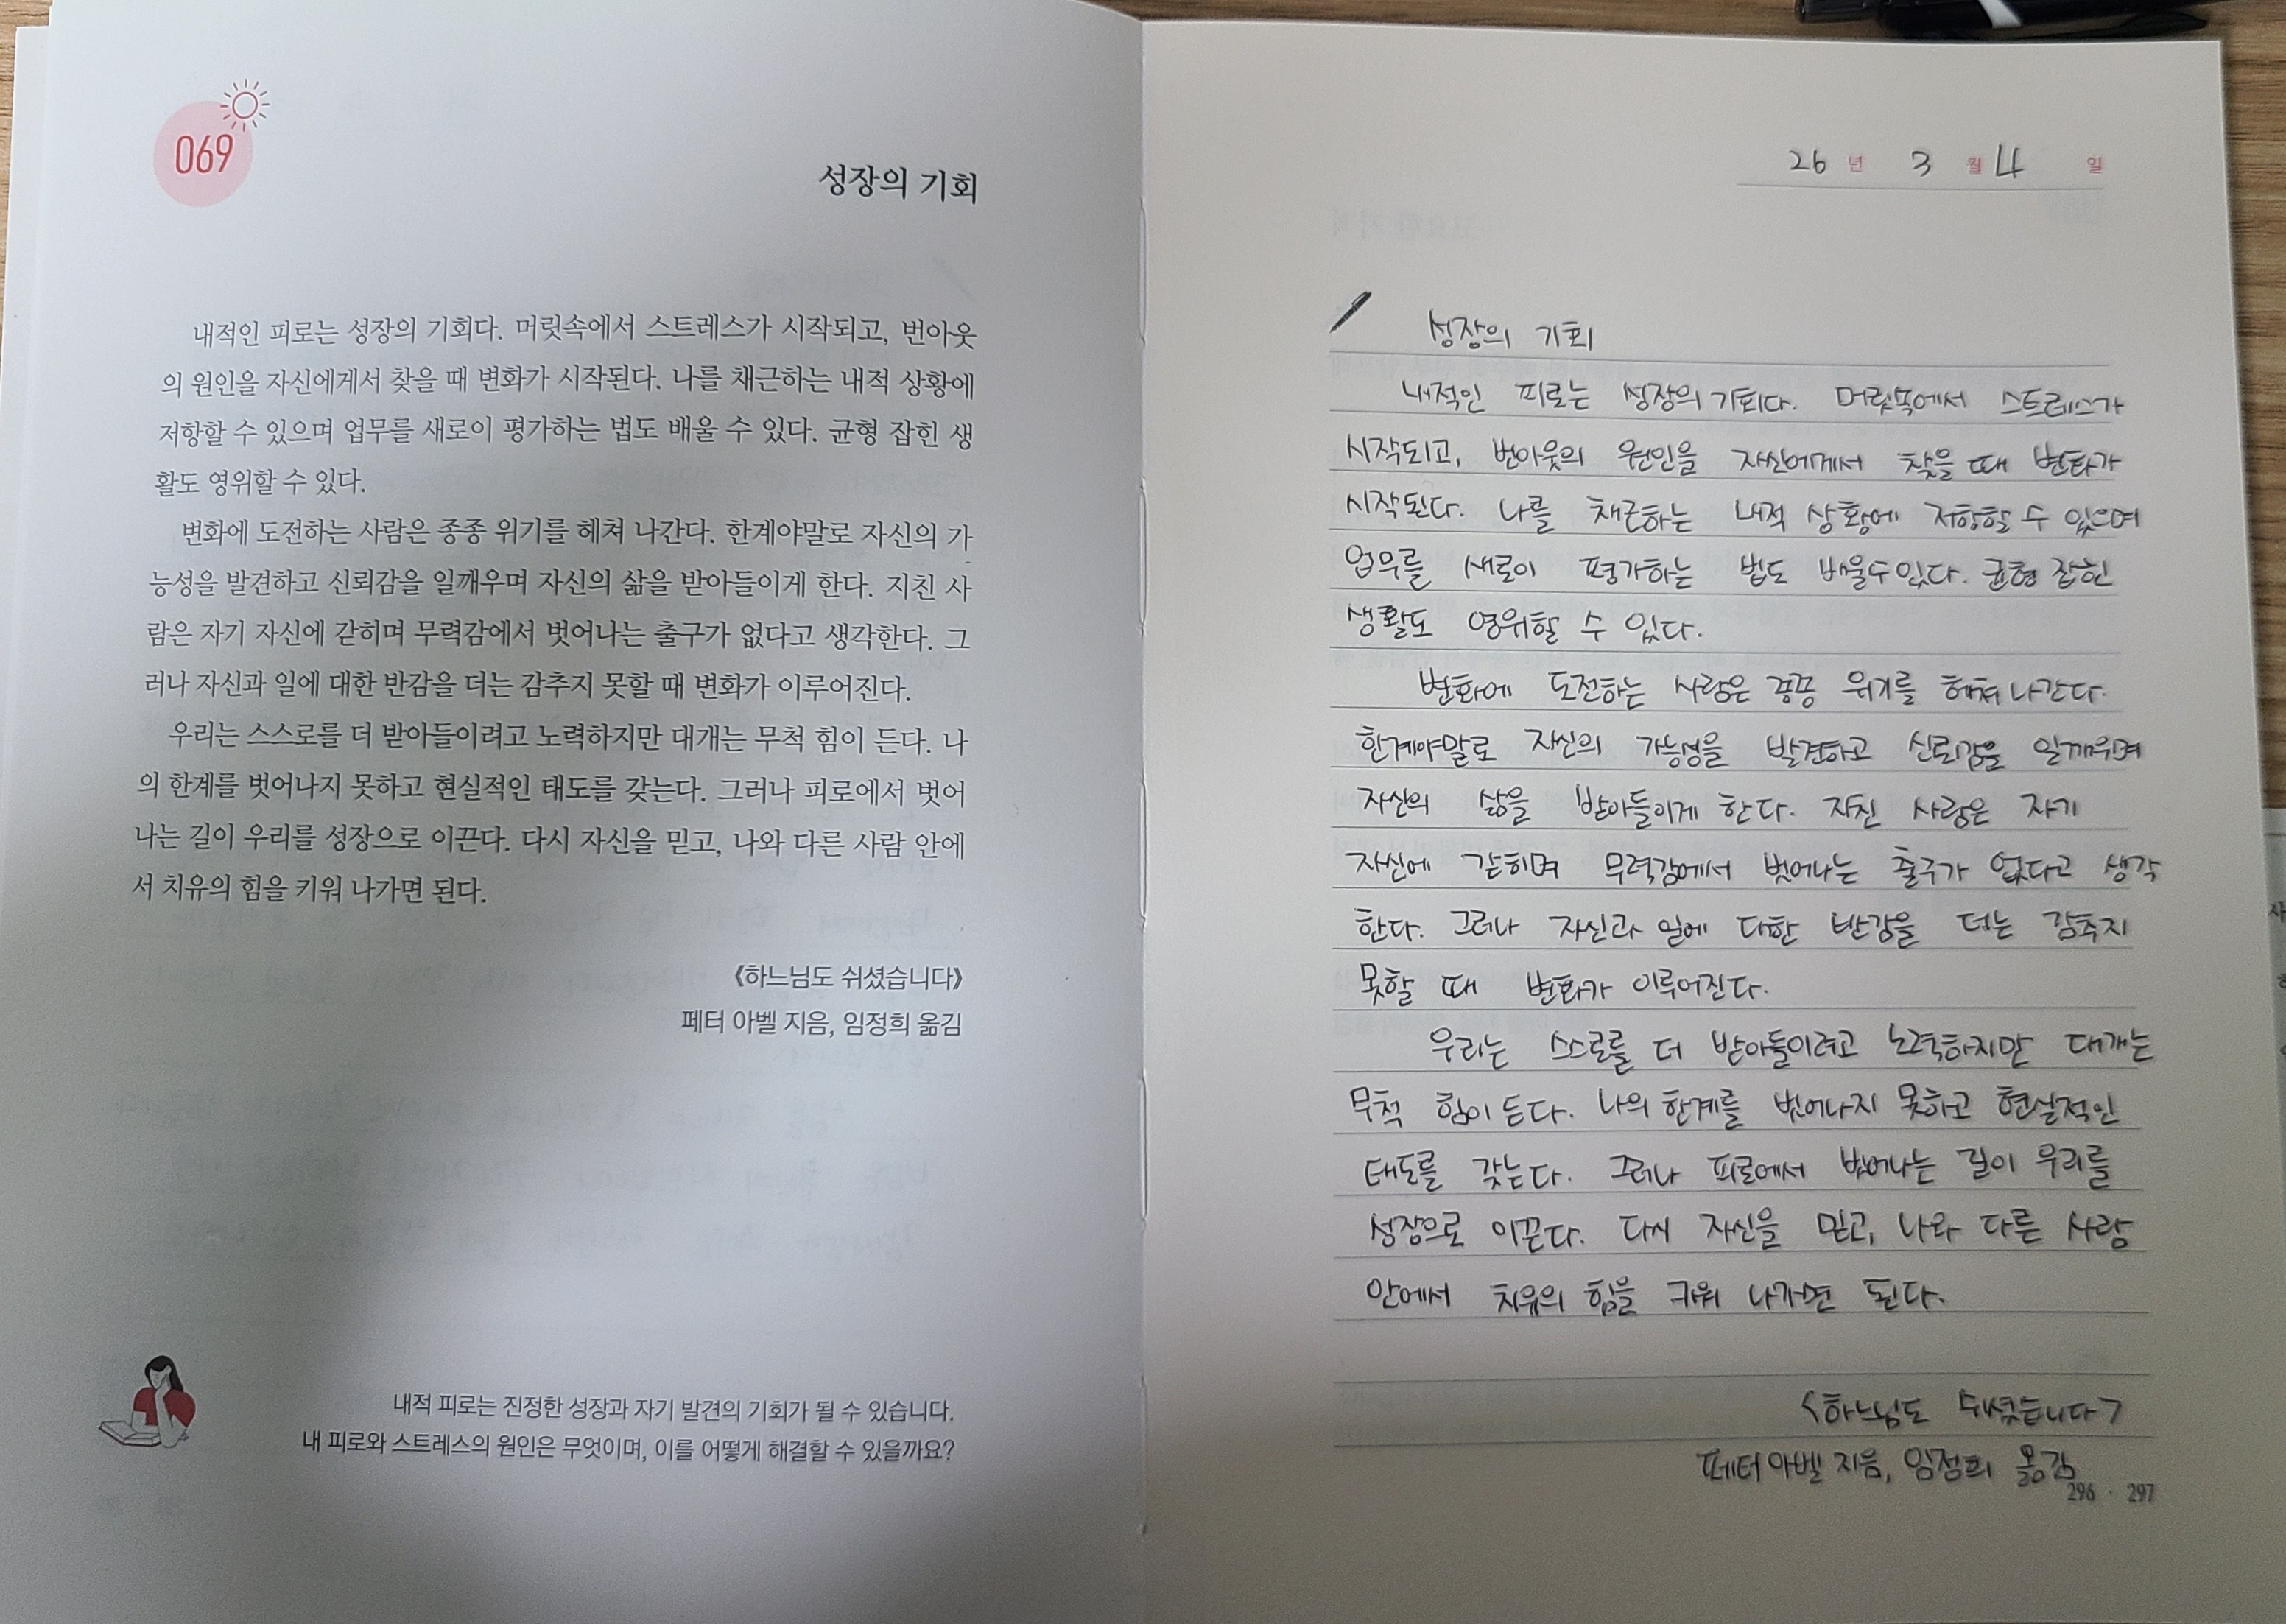 069
성장의 기회
내적인 피로는 성장의 기회다. 머릿속에서 스트레스가 시작되고, 번아웃
의 원인을 자신에게서 찾을 때 변화가 시작된다. 나를 채근하는 내적 상황에
저항할 수 있으며 업무를 새로이 평가하는 법도 배울 수 있다. 균형 잡힌 생
활도 영위할 수 있다.
변화에 도전하는 사람은 종종 위기를 헤쳐 나간다. 한계야말로 자신의 가
능성을 발견하고 신뢰감을 일깨우며 자신의 삶을 받아들이게 한다. 지친 사
람은 자기 자신에 갇히며 무력감에서 벗어나는 출구가 없다고 생각한다. 그
러나 자신과 일에 대한 반감을 더는 감추지 못할 때 변화가 이루어진다.
우리는 스스로를 더 받아들이려고 노력하지만 대개는 무척 힘이 든다. 나
의 한계를 벗어나지 못하고 현실적인 태도를 갖는다. 그러나 피로에서 벗어
나는 길이 우리를 성장으로 이끈다. 다시 자신을 믿고, 나와 다른 사람 안에
서 치유의 힘을 키워 나가면 된다.
《하느님도 쉬셨습니다》
페터 아벨 지음, 임정희 옮김
내적 피로는 진정한 성장과 자기 발견의 기회가 될 수 있습니다.
내 피로와 스트레스의 원인은 무엇이며, 이를 어떻게 해결할 수 있을까요?
26 년 3 월 4 일
성장의 기회
내적인 피로는 성장의 기회다. 머릿속에서 스트레스가
시작되고, 번아웃의 원인을 자신에게서 찾을 때 변화가
시작된다. 나를 채근하는 내적 상황에 저항할 수 있으며
업무를 새로이 평가하는 법도 배울 수 있다. 균형 잡힌
생활도 영위할 수 있다.
변화에 도전하는 사람은 종종 위기를 헤쳐 나간다.
한계야말로 자신의 가능성을 발견하고 신뢰감을 일깨우며
자신의 삶을 받아들이게 한다. 지친 사람은 자기
자신에 갇히며 무력감에서 벗어나는 출구가 없다고 생각
한다. 그러나 자신과 일에 대한 반감을 더는 감추지
못할 때 변화가 이루어진다.
우리는 스스로를 더 받아들이려고 노력하지만 대개는
무척 힘이 든다. 나의 한계를 벗어나지 못하고 현실적인
태도를 갖는다. 그러나 피로에서 벗어나는 길이 우리를
성장으로 이끈다. 다시 자신을 믿고, 나와 다른 사람
안에서 치유의 힘을 키워 나가면 된다.
<하느님도 쉬셨습니다>
페터 아벨 지음, 임정희 옮김
296 · 297